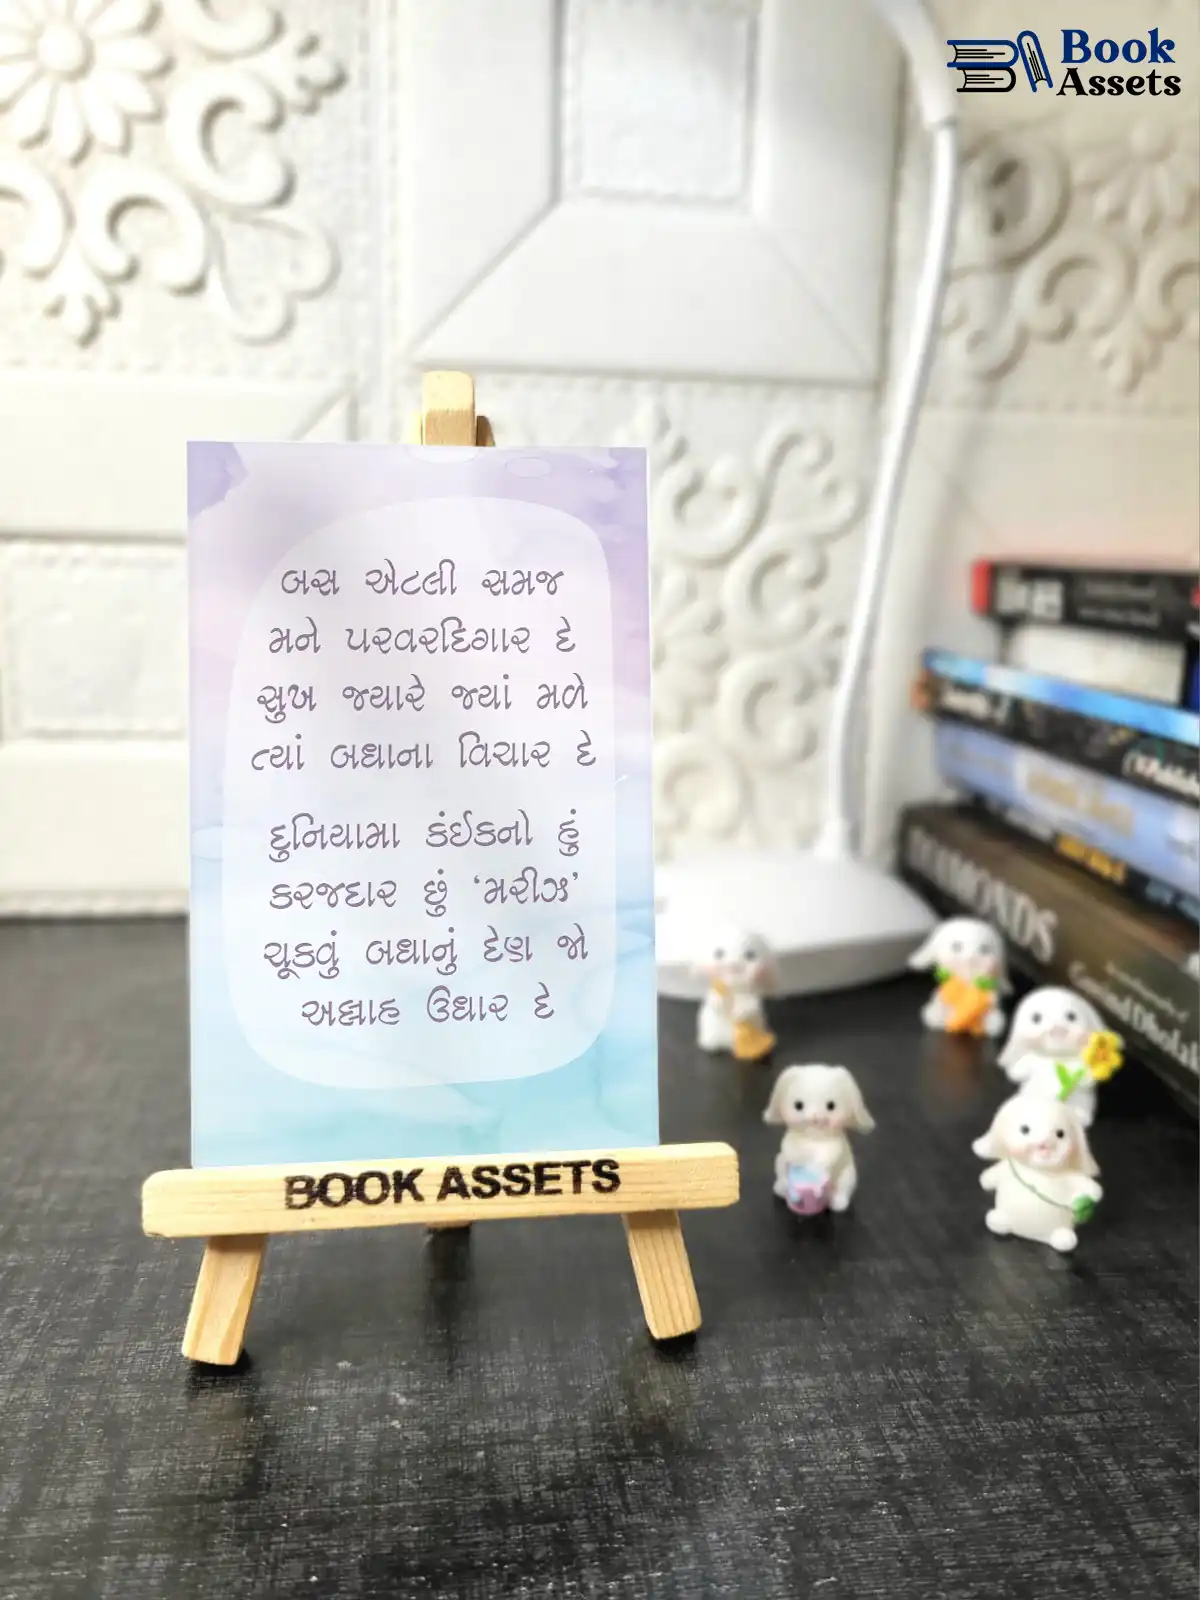 Book
Assets
બસ એટલી સમજ
મને પરવરદિગાર દે
સુખ જ્યારે જ્યાં મળે
ત્યાં બધાના વિચાર દે
દુનિયામા કંઈકનો હું
કરજદાર છું ‘મરીઝ’
ચૂકવું બધાનું દેણ જો
અલ્લાહ ઉધાર દે
BOOK ASSETS
DIAMONDS
Govind Dholakia